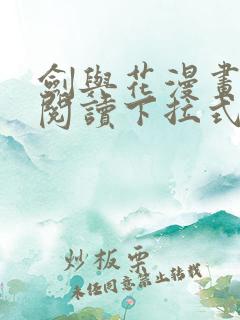 劍與花漫畫
閱讀下拉式
炒板栗
未經同意禁止轉載